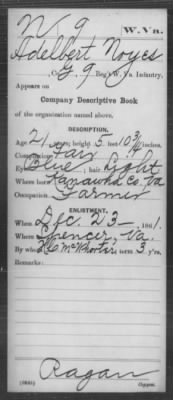 N 9 W. Va.
Adelbert Noyes
Co. G, 9 Reg't W. Va Infantry.
Appears on
Company Descriptive Book
of the organization named above.
DESCRIPTION.
Age 21 years; height 5 feet 10 3/4 inches.
Complexion Fair
Eyes Blue; hair Light
Where born Kanawha Co. Va
Occupation Farmer
ENLISTMENT.
When Dec. 23, 1861.
Where Spencer, Va.
By whom McWhorter; term 3 y'rs.
Remarks:
Ragan
Copyist.